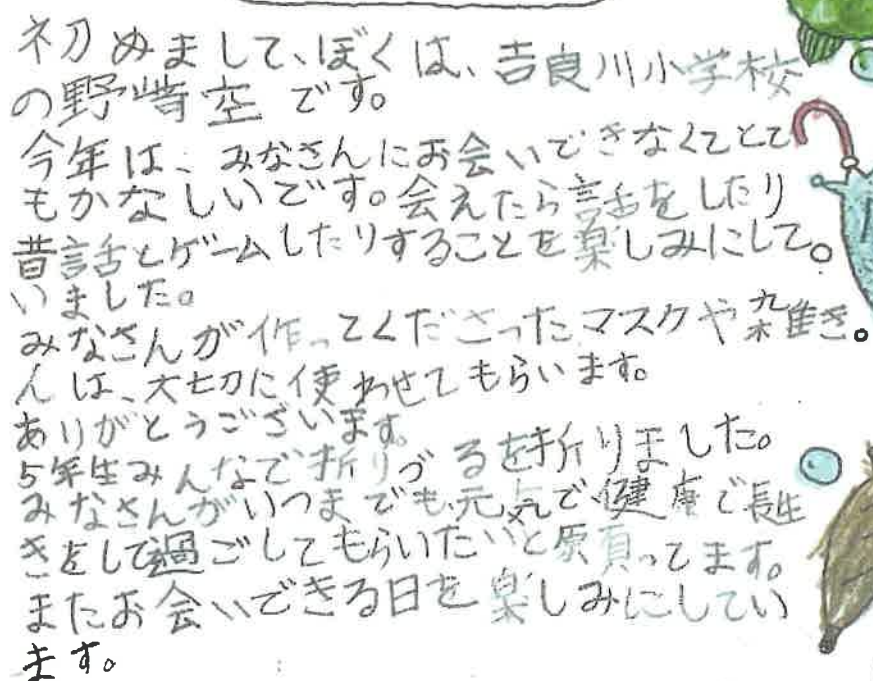 初めまして、ぼくは、吉良川小学校
の野﨑空です。
今年は、みなさんにお会いできなくてとて
もかなしいです。会えたら話をしたり
昔話とゲームしたりすることを楽しみにして。
いました。
みなさんが作ってくださったマスクや雑き。
んは、大切に使わせてもらいます。
ありがとうございます。
5年生みんなで折りづるを折りました。
みなさんがいつまでも元気で健康で長生
きをして過ごしてもらいたいと願ってます。
またお会いできる日を楽しみにしてい
ます。